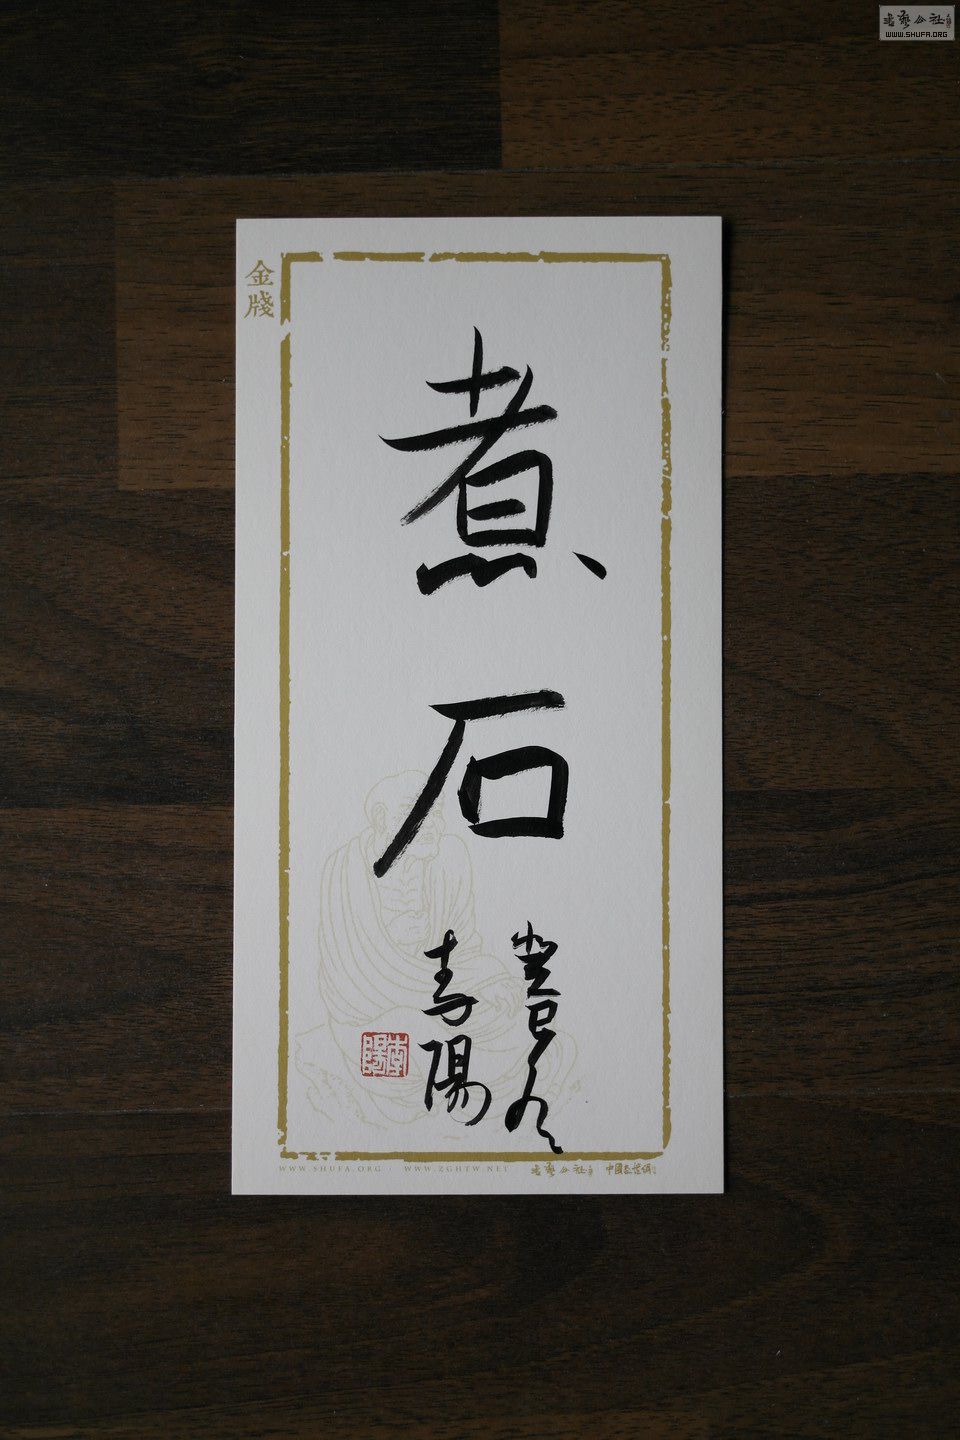 書藝公社
WWW.SHUFA.ORG
金牋
煮石
癸巳冬
春陽
WWW.SHUFA.ORG
WWW.ZGHTW.NET
書藝公社